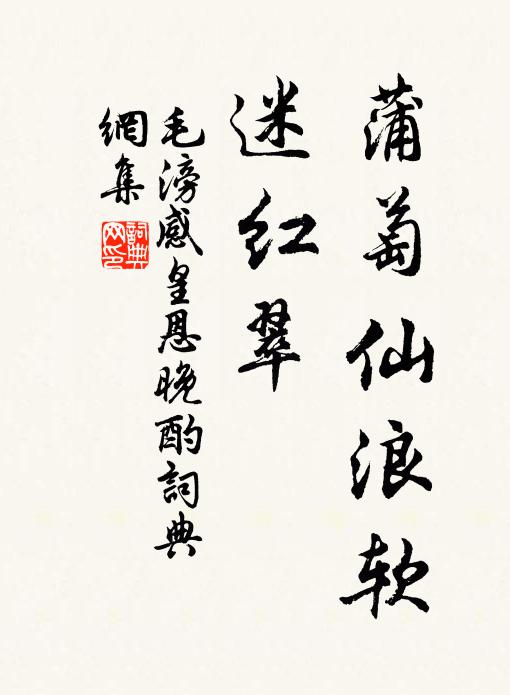 蒲萄仙浪软
迷红翠
毛滂感皇恩晚酌詞典
網集
詞典网印